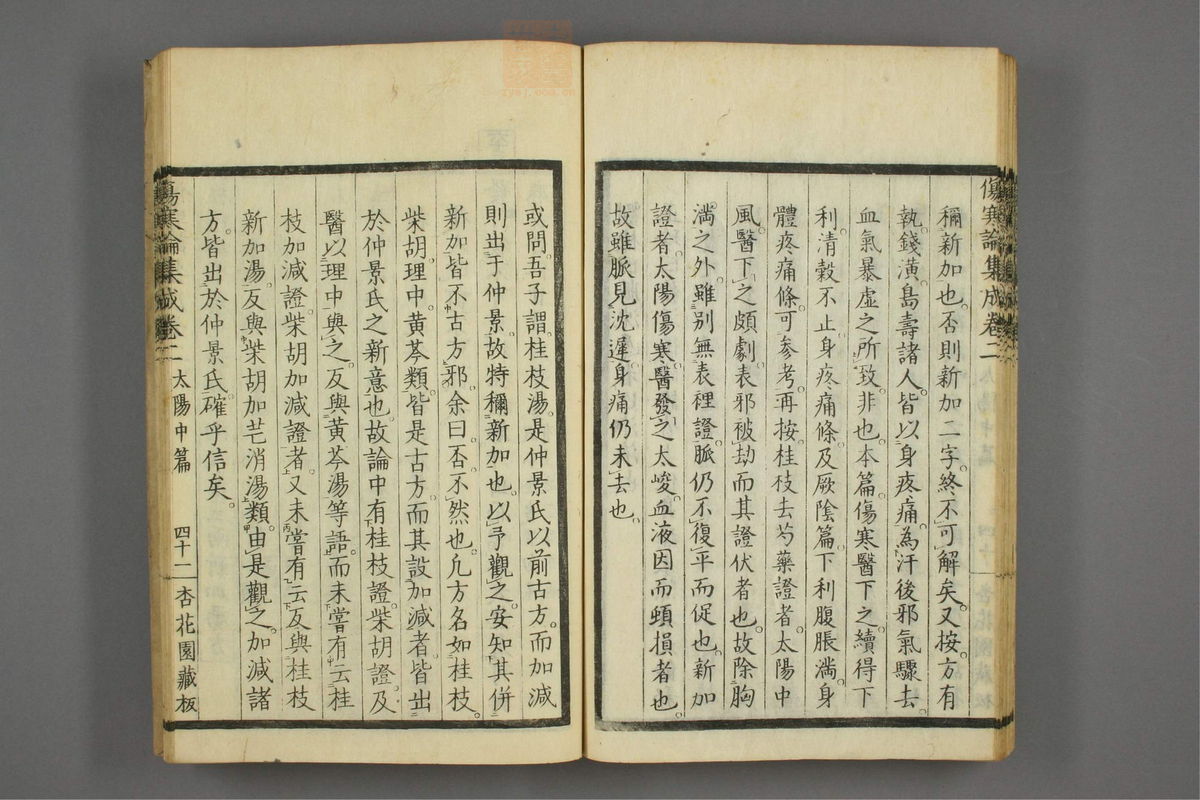 傷寒論集成卷二
稱新加也否則新加二字終不可解矣又按方有
執錢潢島壽諸人皆以身疼痛為汗後邪氣驟去
血氣暴虛之所致非也本篇傷寒醫下之續得下
利清穀不止身疼痛條及厥陰篇下利腹脹滿身
體疼痛條可參考再按桂枝去芍藥證者太陽中
風醫下之頗劇表邪被劫而其證伏者也故除胸
滿之外雖別無表裡證脈仍不復平而促也新加
證者太陽傷寒醫發之太峻血液因而頓損者也
故雖脈見沈遲身痛仍未去也
或問吾子謂桂枝湯是仲景氏以前古方而加減
則出于仲景故特稱新加也以予觀之安知其併
新加皆不古方邪余曰否不然也凡方名如桂枝
柴胡理中黄芩類皆是古方而其設加減者皆出
於仲景氏之新意也故論中有桂枝證柴胡證及
醫以理中與之反與黄芩湯等語而未嘗有云桂
枝加減證柴胡加減證者又未嘗有云反與桂枝
新加湯反與柴胡加芒消湯類由是觀之加減諸
方皆出於仲景氏確乎信矣
傷寒論集成卷二 太陽中篇 四十二 杏花園藏板